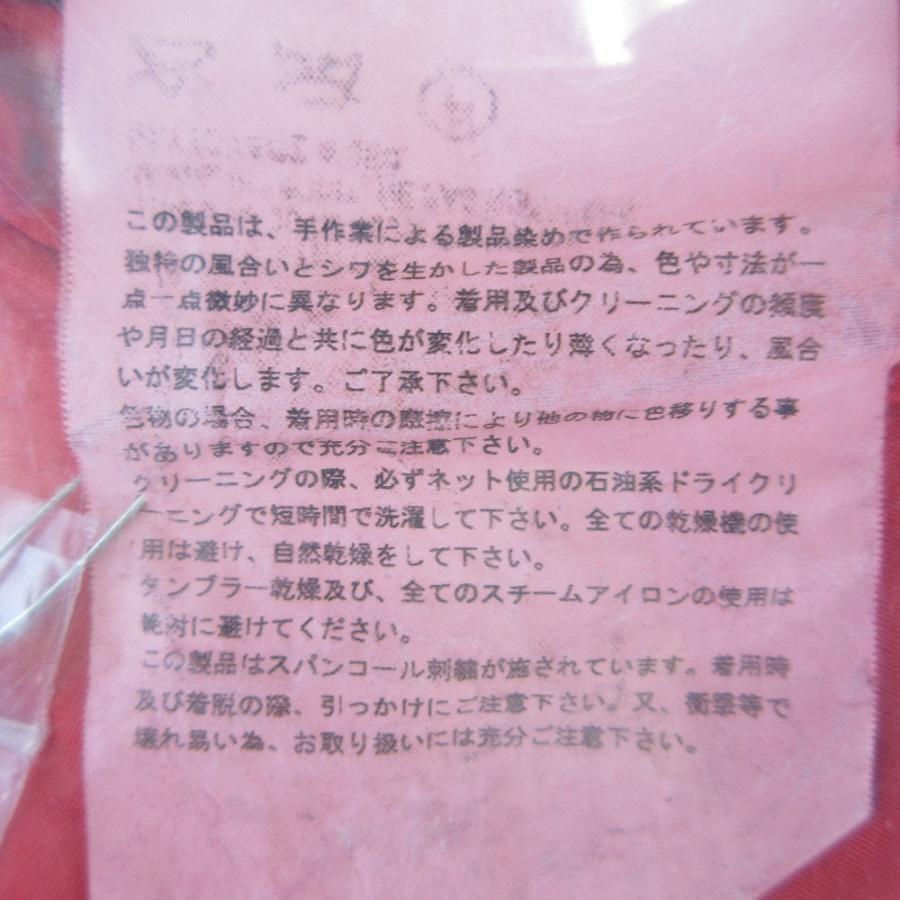 この製品は、手作業による製品染めで作られています。
独特の風合いとシワを生かした製品の為、色や寸法が一
点一点微妙に異なります。着用及びクリーニングの頻度
や月日の経過と共に色が変化したり薄くなったり、風合
いが変化します。ご了承下さい。
色物の場合、着用時の摩擦により他の物に色移りする事
がありますので充分ご注意下さい。
クリーニングの際、必ずネット使用の石油系ドライクリ
ーニングで短時間で洗濯して下さい。全ての乾燥機の使
用は避け、自然乾燥をして下さい。
タンブラー乾燥及び、全てのスチームアイロンの使用は
絶対に避けてください。
この製品はスパンコール刺繍が施されています。着用時
及び着脱の際、引っかけにご注意下さい。又、衝撃等で
壊れ易い為、お取り扱いには充分ご注意下さい。